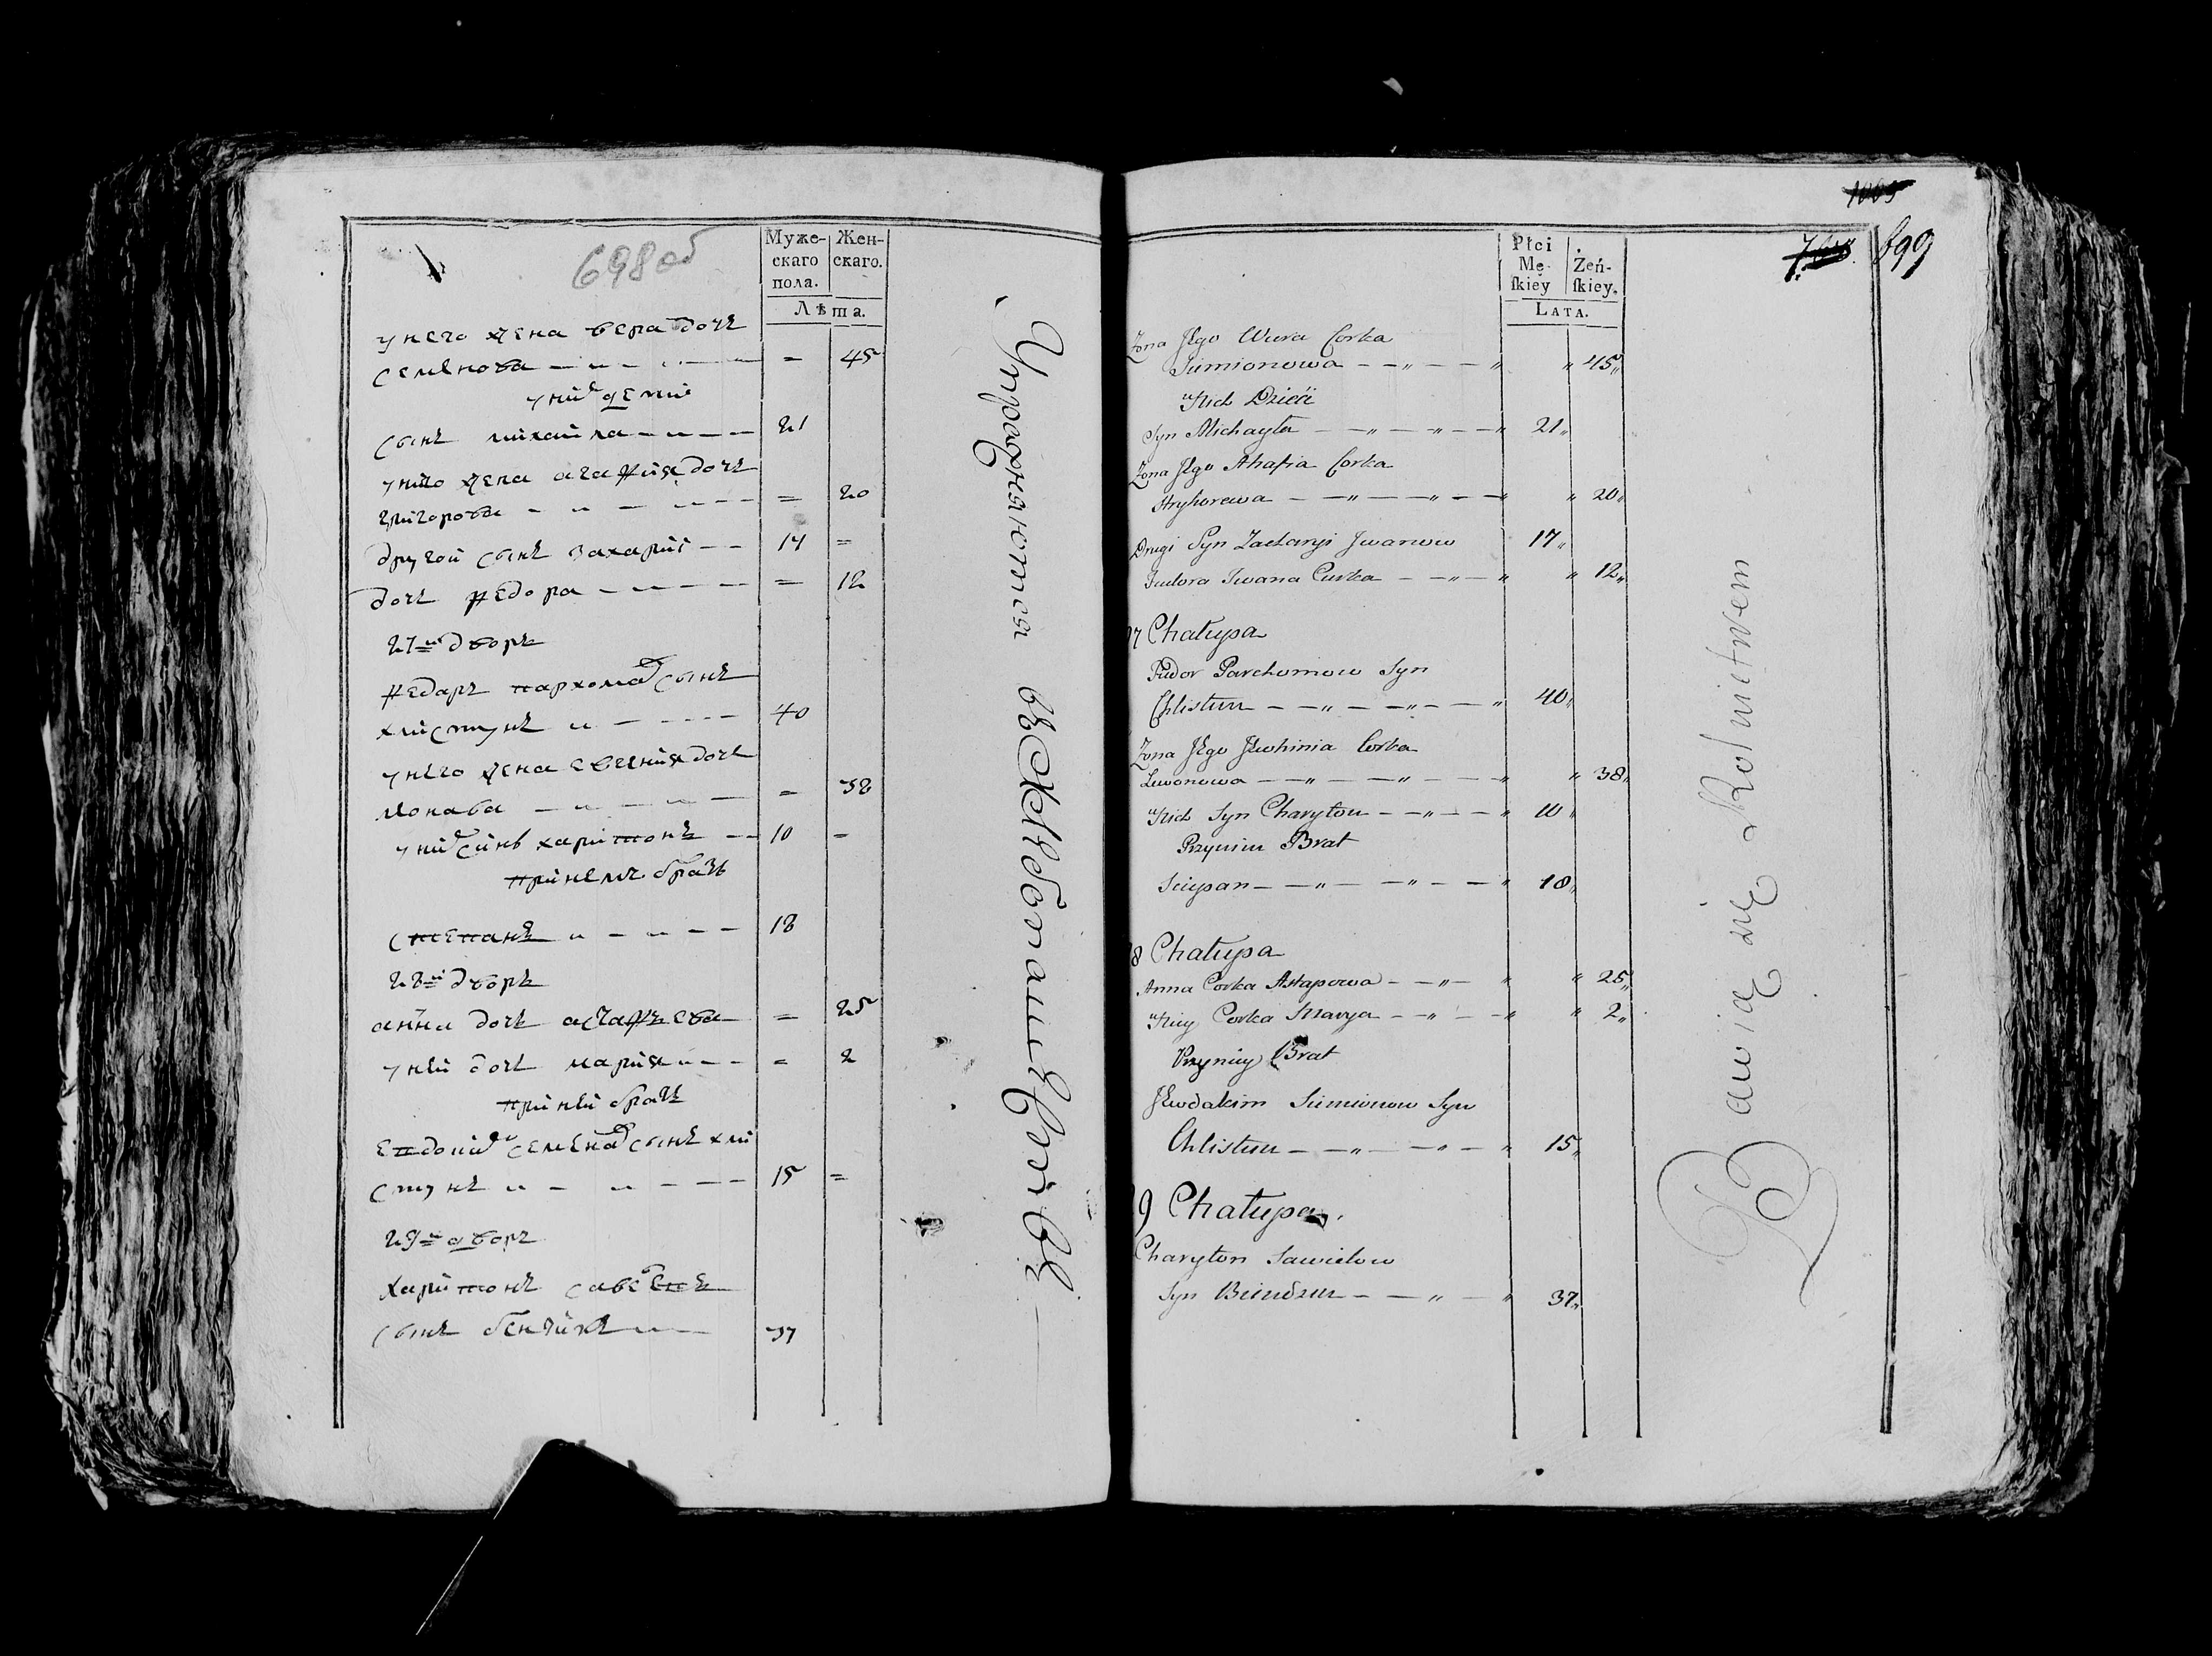 698 об
Муже-
скаго
пола.
Жен-
скаго.
Лѣта.
у него жена вера дочь
семенова 45
у них дети
сынъ михаила 21
у него жена агафия дочь
григорова 20
другой сынъ захарий 17
дочь федора 12
27й дворъ
федаръ пархомов сынъ
хлистунъ 40
у него жена евгения дочь
38
у них синъ харитонъ 10
при немъ братъ
степанъ 18
28й дворъ
анна дочь астафьева 25
у ней дочь мария 2
при ней братъ
семенов сынъ хли
стунъ 15
29й дворъ
харитонъ
сынъ 37
Упражняются въ Хлебопашестве
1065
699
Płci
Mę-
ſkiey
Żeń-
ſkiey.
LATA.
Zona Jego Wiera Corka
Siemionowa 45
u Nich Dzieći
Syn Michayła 21
Zona Jego Ahafia Corka
Hryhorewa 20
Drugi Syn Zacharyi Jwanow 17
Fiedora Iwana Curka 12
7 Chałupa
Fiudor Parchomow Syn
Chlistun 40
Zona Jego Jewhinia Corka
Lewonowa 38
u Nich Syn Charyton 10
Przynim Brat
Sciepan 18
8 Chałupa
Anna Corka Astapowa 25
u Niey Corka Marya 2
Przyniey Brat
Jewdakim Siemionow Syn
Chlistun 15
9 Chałupa
Charyton Sawielow
Syn 37
Bawią się Rolnictwem